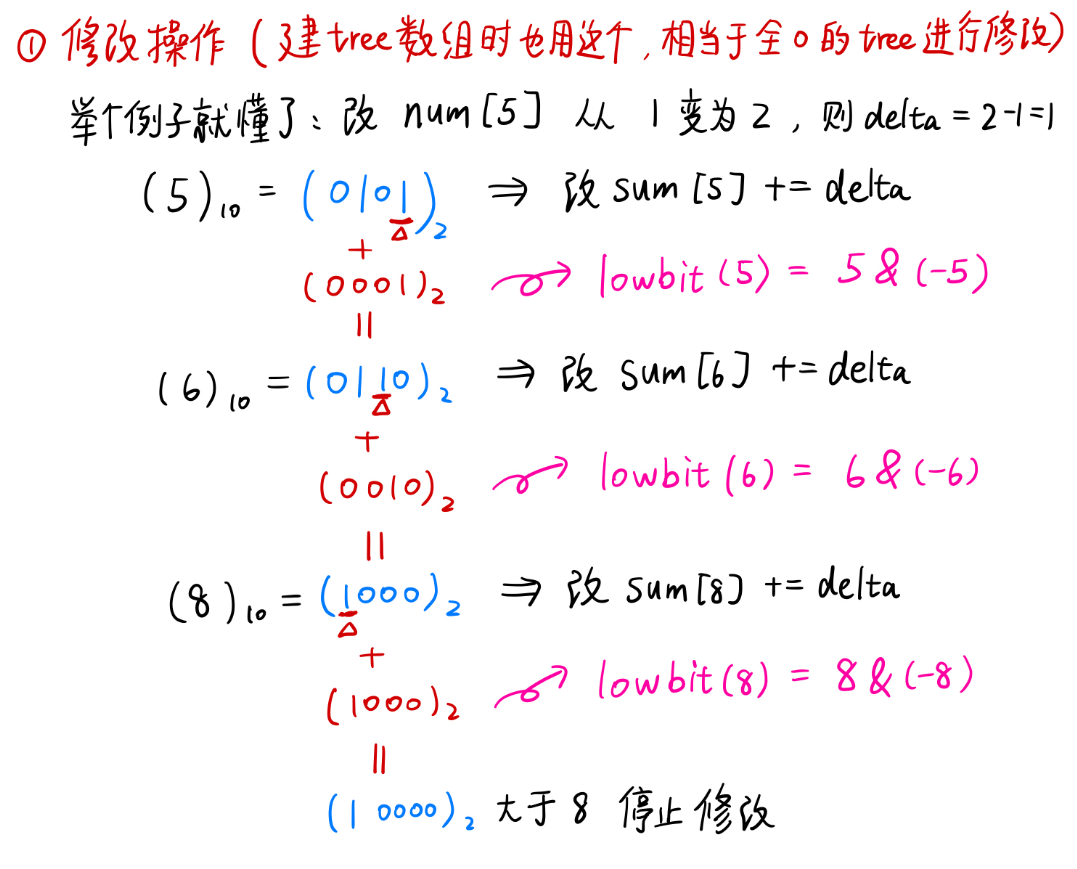 ① 修改操作 (建tree数组时也用这个,相当于全0的tree进行修改)
举个例子就懂了:改 num[5] 从 1 变为 2 , 则 delta = 2-1=1
(5)₁₀ = (0101)₂ ⇒ 改 sum[5] += delta
+
(0001)₂ → lowbit(5) = 5&(-5)
=
(6)₁₀ = (0110)₂ ⇒ 改 sum[6] += delta
+
(0010)₂ → lowbit(6) = 6&(-6)
=
(8)₁₀ = (1000)₂ ⇒ 改 sum[8] += delta
+
(1000)₂ → lowbit(8) = 8&(-8)
=
(1 0000)₂ 大于 8 停止修改